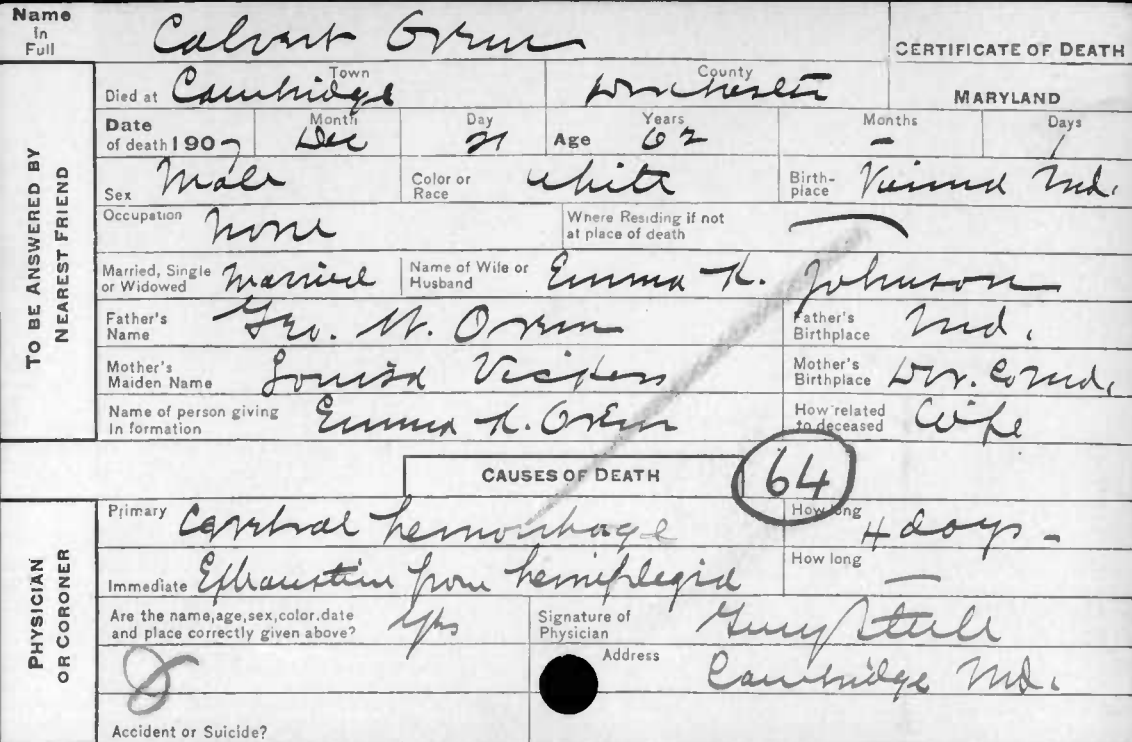 Name in Full Calvert Orem
CERTIFICATE OF DEATH
TO BE ANSWERED BY NEAREST FRIEND
Died at Cambridge Town Dorchester County MARYLAND
Date of death 1907 Month Dec Day 21 Age Years 62 Months - Days 1
Sex Male Color or Race White Birth-place Vienna Md.
Occupation None Where Residing if not at place of death —
Married, Single or Widowed Married Name of Wife or Husband Emma K. Johnson
Father's Name Geo. W. Orem Father's Birthplace Md.
Mother's Maiden Name Louisa Vickers Mother's Birthplace Dor. Co Md.
Name of person giving In formation Emma K. Orem How related to deceased Wife
CAUSES OF DEATH 64
PHYSICIAN OR CORONER
Primary Cerebral hemorrhage How long 4 days -
Immediate Exhaustion from hemiplegia How long —
Are the name, age, sex, color, date and place correctly given above? Yes Signature of Physician Guy Steele
Address Cambridge Md.
Accident or Suicide?